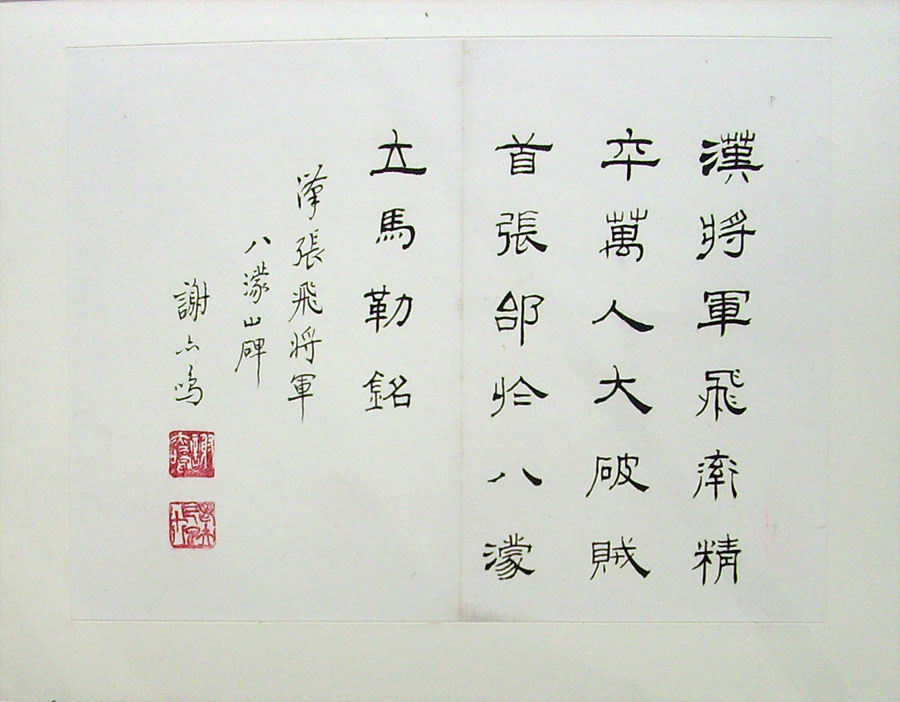 漢將軍飛率精
卒萬人大破賊
首張郃於八濛
立馬勒銘
漢張飛將軍
八濛山碑
謝六鳴